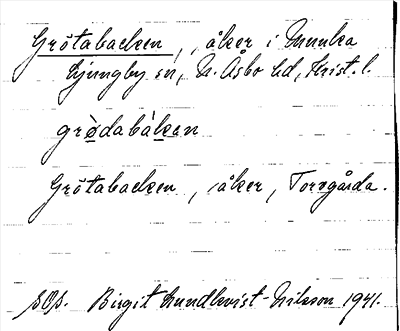 Grötabacken, åker i Munka
Ljungby sn, N. Åsbo hd, Krist. l.
grødabàkan
Grötabacken, åker, Torsgårda.
Birgit Lundkvist-Nilsson 1941.